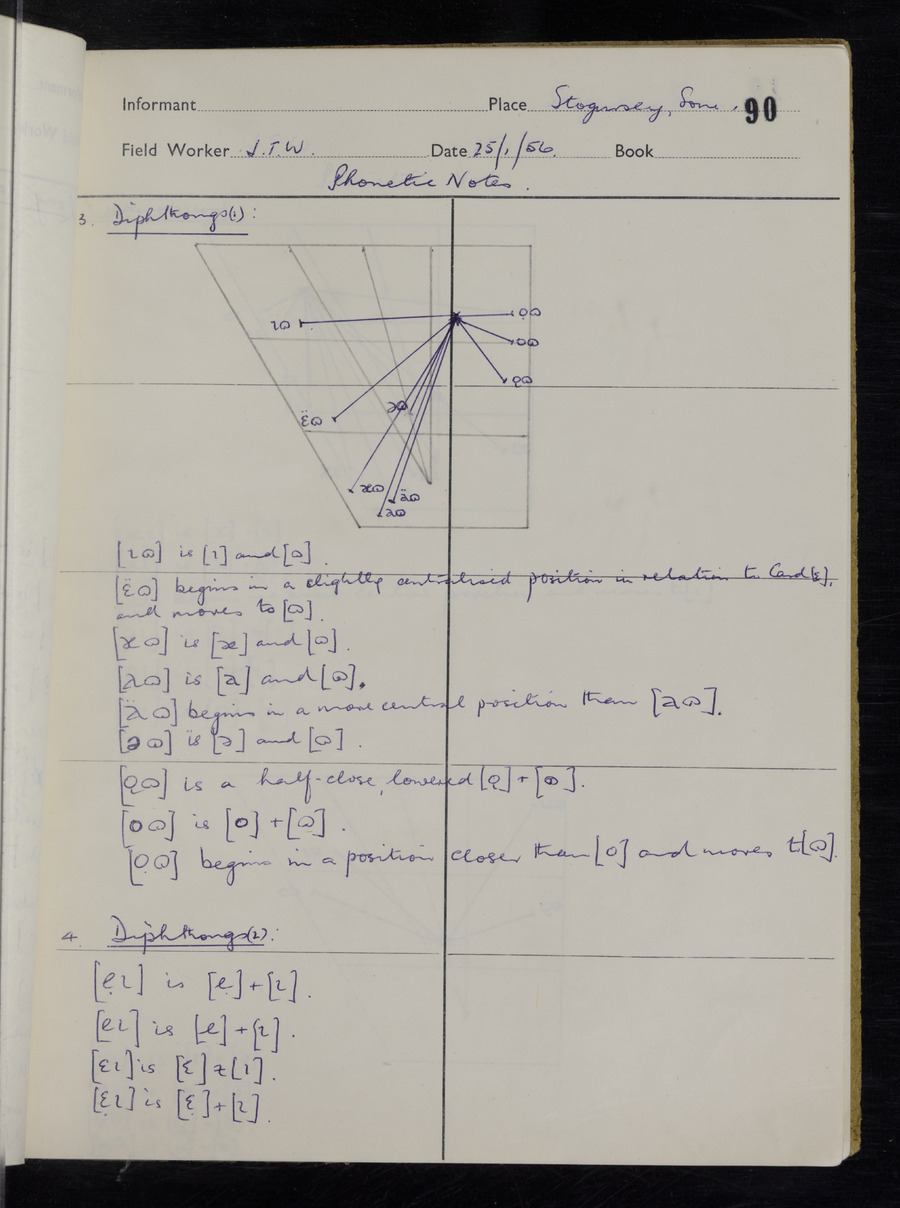 Informant Place Stogursey, Som. 90
Field Worker J.T.W. Date 25/1/56. Book
Phonetic Notes.
3. Diphthongs(1):
ɩɷ
o̝ɷ
oɷ
o̞ɷ
ɛ̈ɷ
əɷ
æɷ
äɷ
aɷ
[ɩɷ] is [ɩ] and [ɷ].
[ɛ̈ɷ] begins in a slightly centralised position in relation to Card [ɛ],
and moves to [ɷ].
[æɷ] is [æ] and [ɷ].
[aɷ] is [a] and [ɷ].
[äɷ] begins in a more central position than [aɷ].
[əɷ] is [ə] and [ɷ].
[o̞ɷ] is a half-close, lowered [o̞] + [ɷ].
[oɷ] is [o] + [ɷ].
[o̝ɷ] begins in a position closer than [o] and moves t[ɷ].
4. Diphthongs(2):
[e̝ɩ] is [e̝]+[ɩ].
[eɩ] is [e]+[ɩ].
[ɛɩ] is [ɛ]+[ɩ].
[ɛ̝ɩ] is [ɛ̝]+[ɩ].